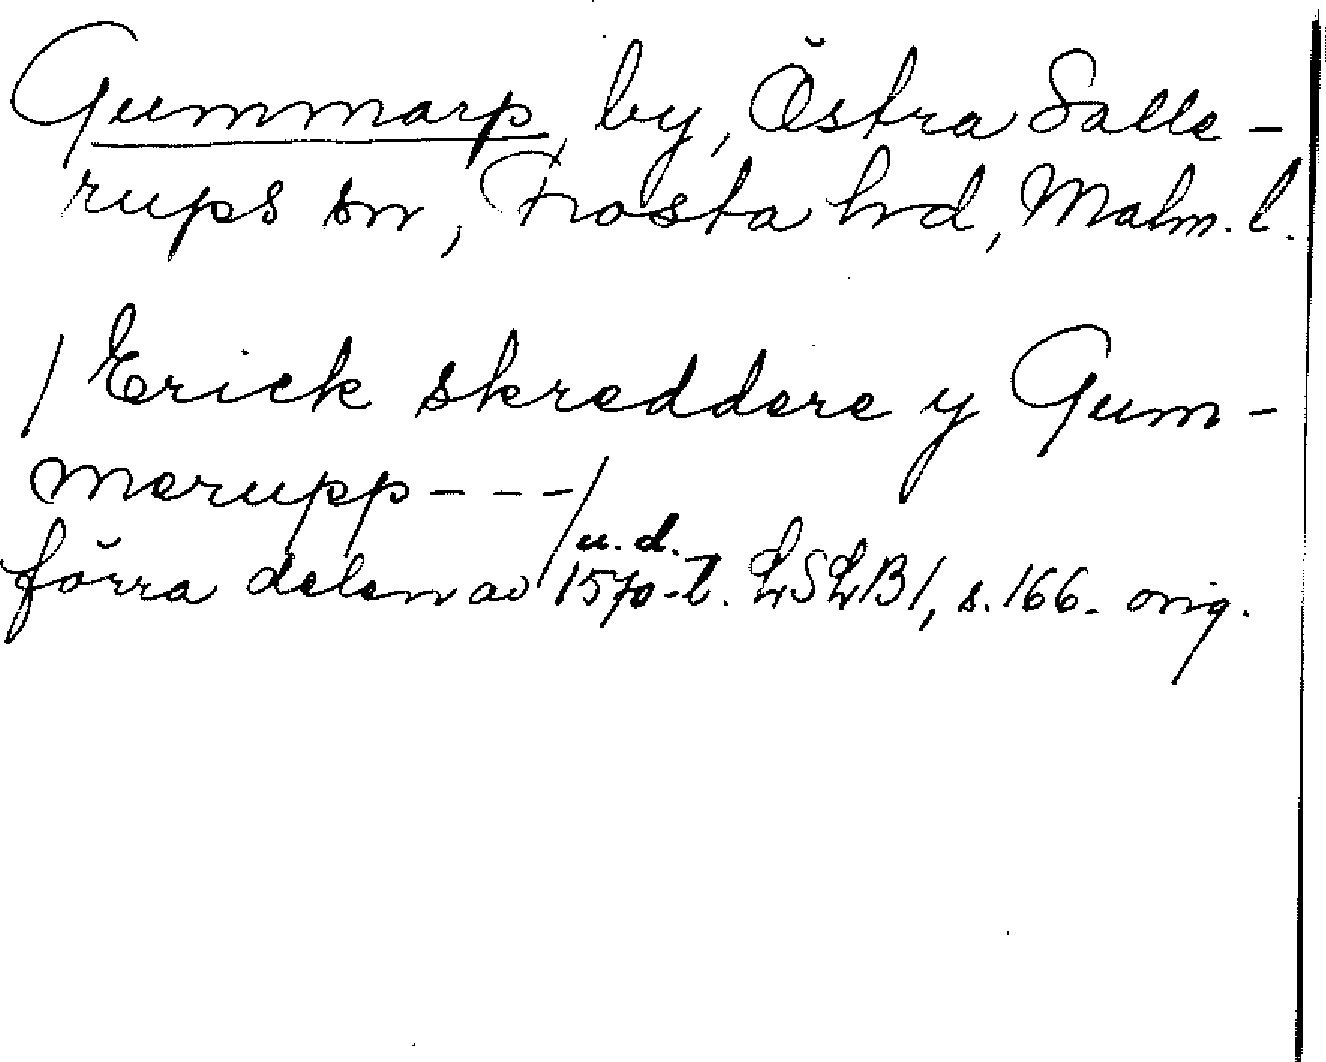 Gummarp, by, Östra Salle-
rups sn, Frosta hd, Malm. l.
/ Erick skreddere y Gum-
merupp - - - /
u. d.
förra delen av 1570-t. LSLB1, s. 166. orig.